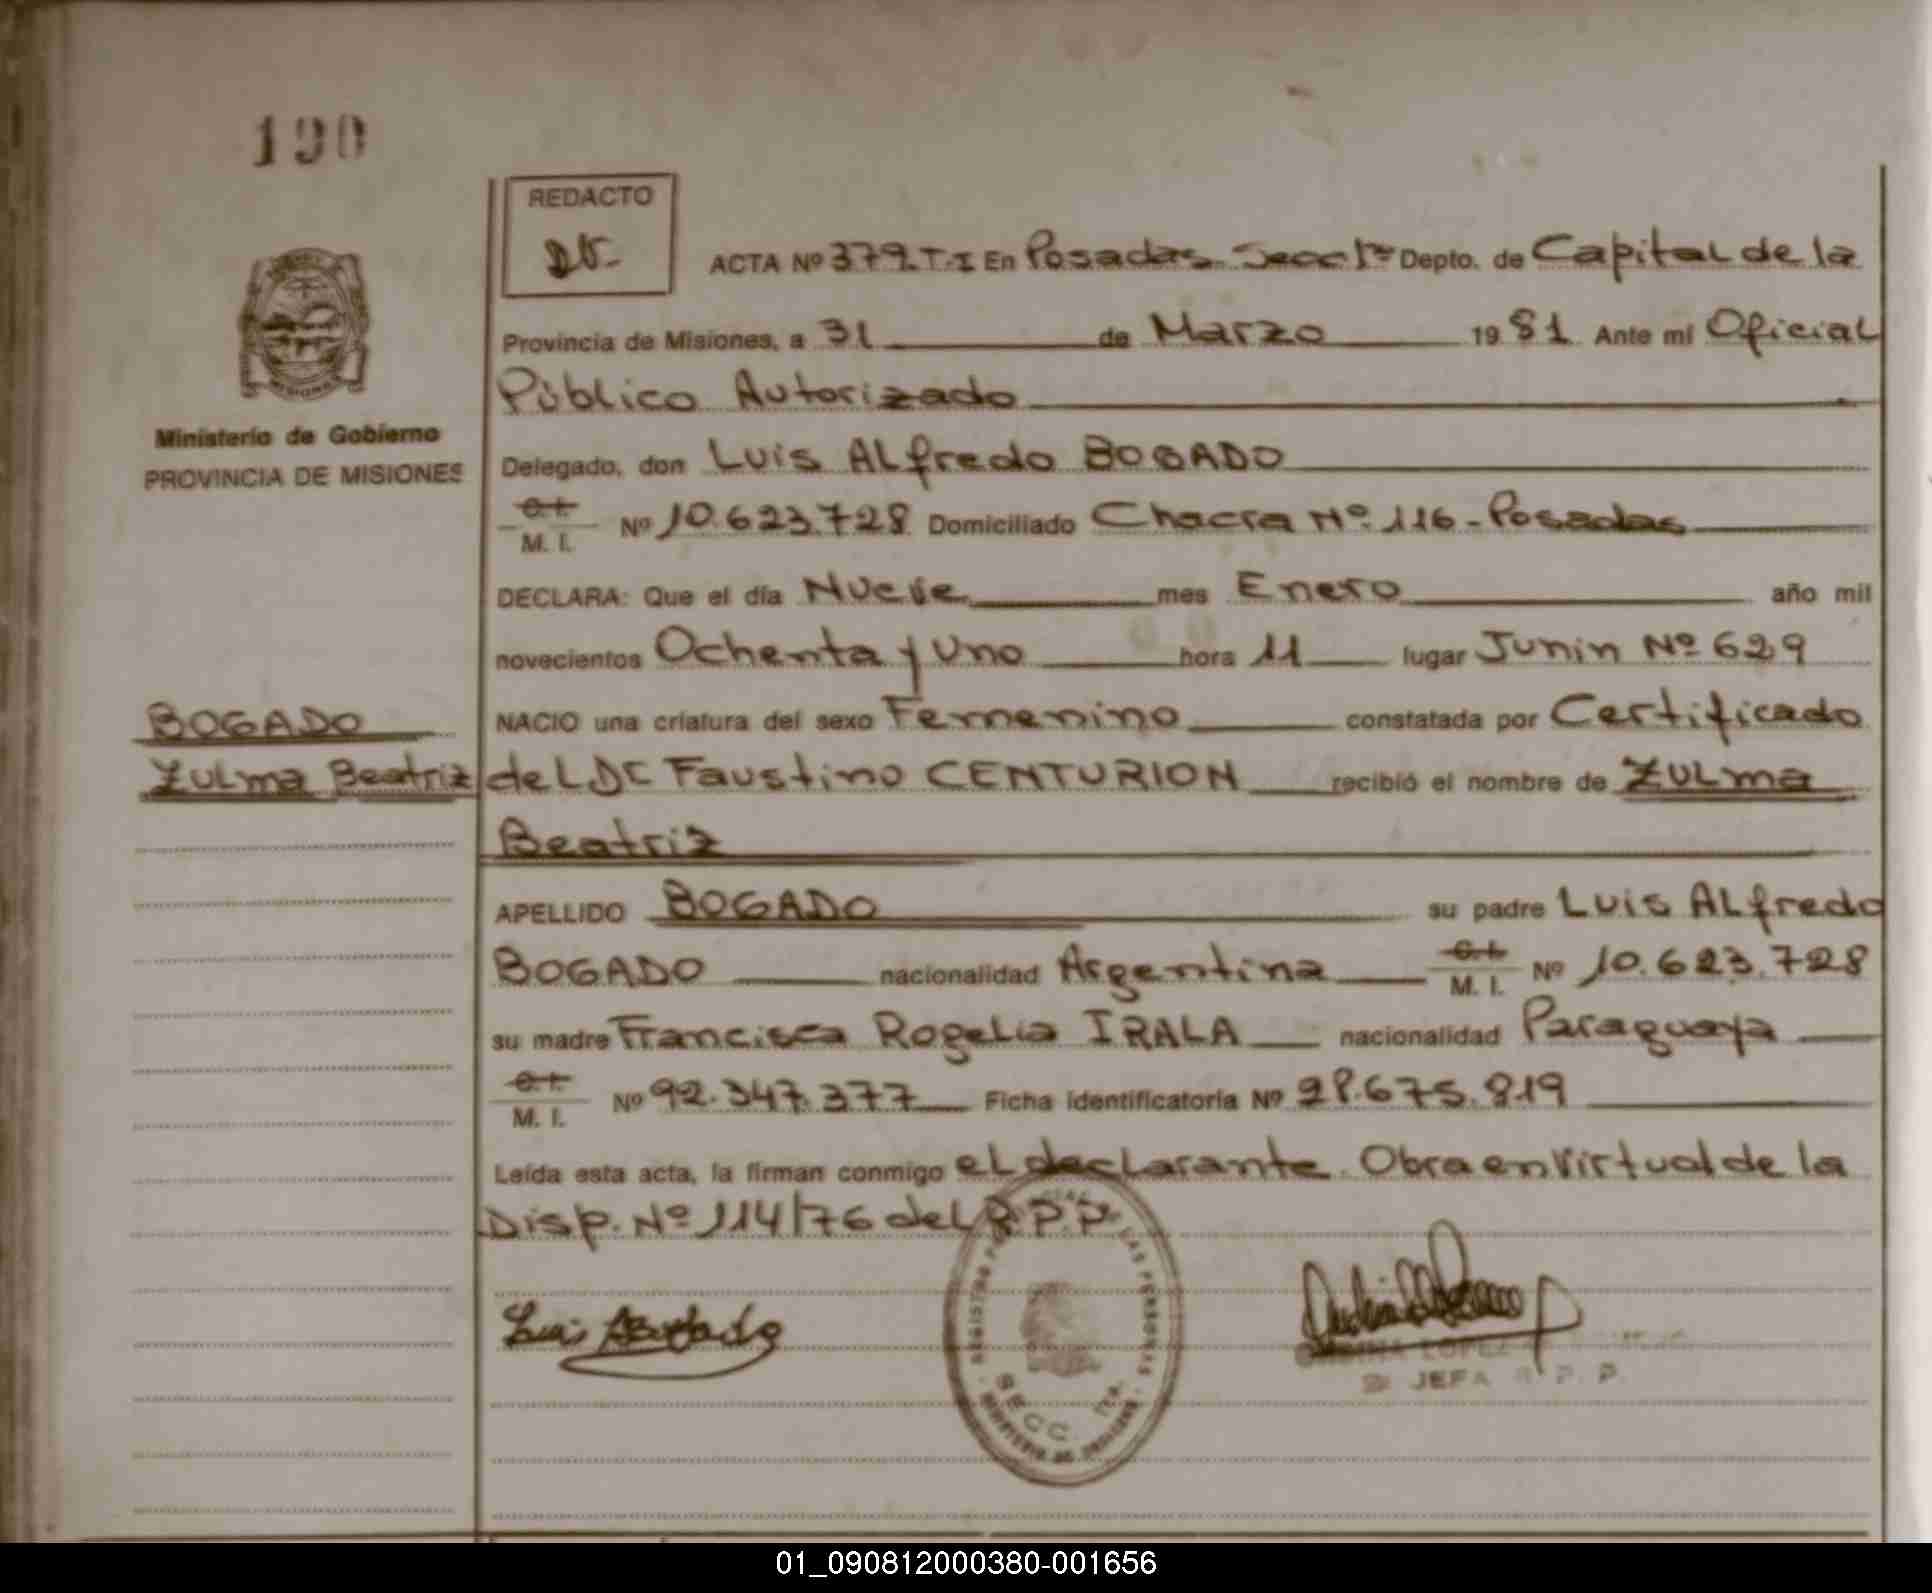 190
REDACTO
ACTA Nº 379.T.I En Posadas Secc 1ra Depto. de Capital de la
Provincia de Misiones, a 31 de Marzo 1981 Ante mí Oficial
Público Autorizado
Ministerio de Gobierno
PROVINCIA DE MISIONES
Delegado, don Luis Alfredo BOGADO
C.I. M. I. Nº 10.623.728 Domiciliado Chacra Nº 116 - Posadas
DECLARA: Que el día Nueve mes Enero año mil
novecientos Ochenta y Uno hora 11 lugar Junin Nº 629
BOGADO
NACIO una criatura del sexo Femenino constatada por Certificado
Zulma Beatriz
del Dr Faustino CENTURION recibió el nombre de Zulma
Beatriz
APELLIDO BOGADO su padre Luis Alfredo
BOGADO nacionalidad Argentina C.I. M. I. Nº 10.623.728
su madre Francisca Rogelia IRALA nacionalidad Paraguaya
C.I. M. I. Nº 92.347.377 Ficha identificatoria Nº 28.675.819
Leída esta acta, la firman conmigo el declarante. Obra en Virtud de la
Disp. Nº 114/76 del R.P.P.
Luis Bogado
REGISTRO LAS PERSONAS
SECC 1RA.
MINISTERIO DE GOBIERNO
LOPEZ
JEFA R. P. P.
01_090812000380-001656